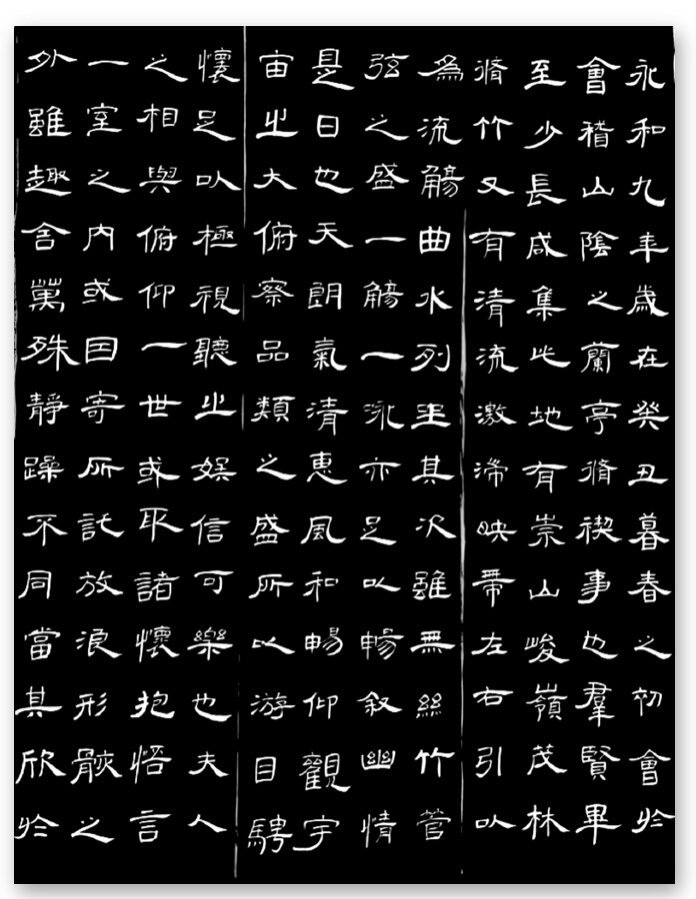 永和九年歲在癸丑暮春之初會於
會稽山陰之蘭亭脩禊事也羣賢畢
至少長咸集此地有崇山峻嶺茂林
脩竹又有清流激湍映帶左右引以
為流觴曲水列坐其次雖無絲竹管
弦之盛一觴一泳亦足以暢敘幽情
是日也天朗氣清惠風和暢仰觀宇
宙之大俯察品類之盛所以游目騁
懷足以極視聽之娛信可樂也夫人
之相與俯仰一世或取諸懷抱悟言
一室之內或因寄所託放浪形骸之
外雖趣舍萬殊靜躁不同當其欣於